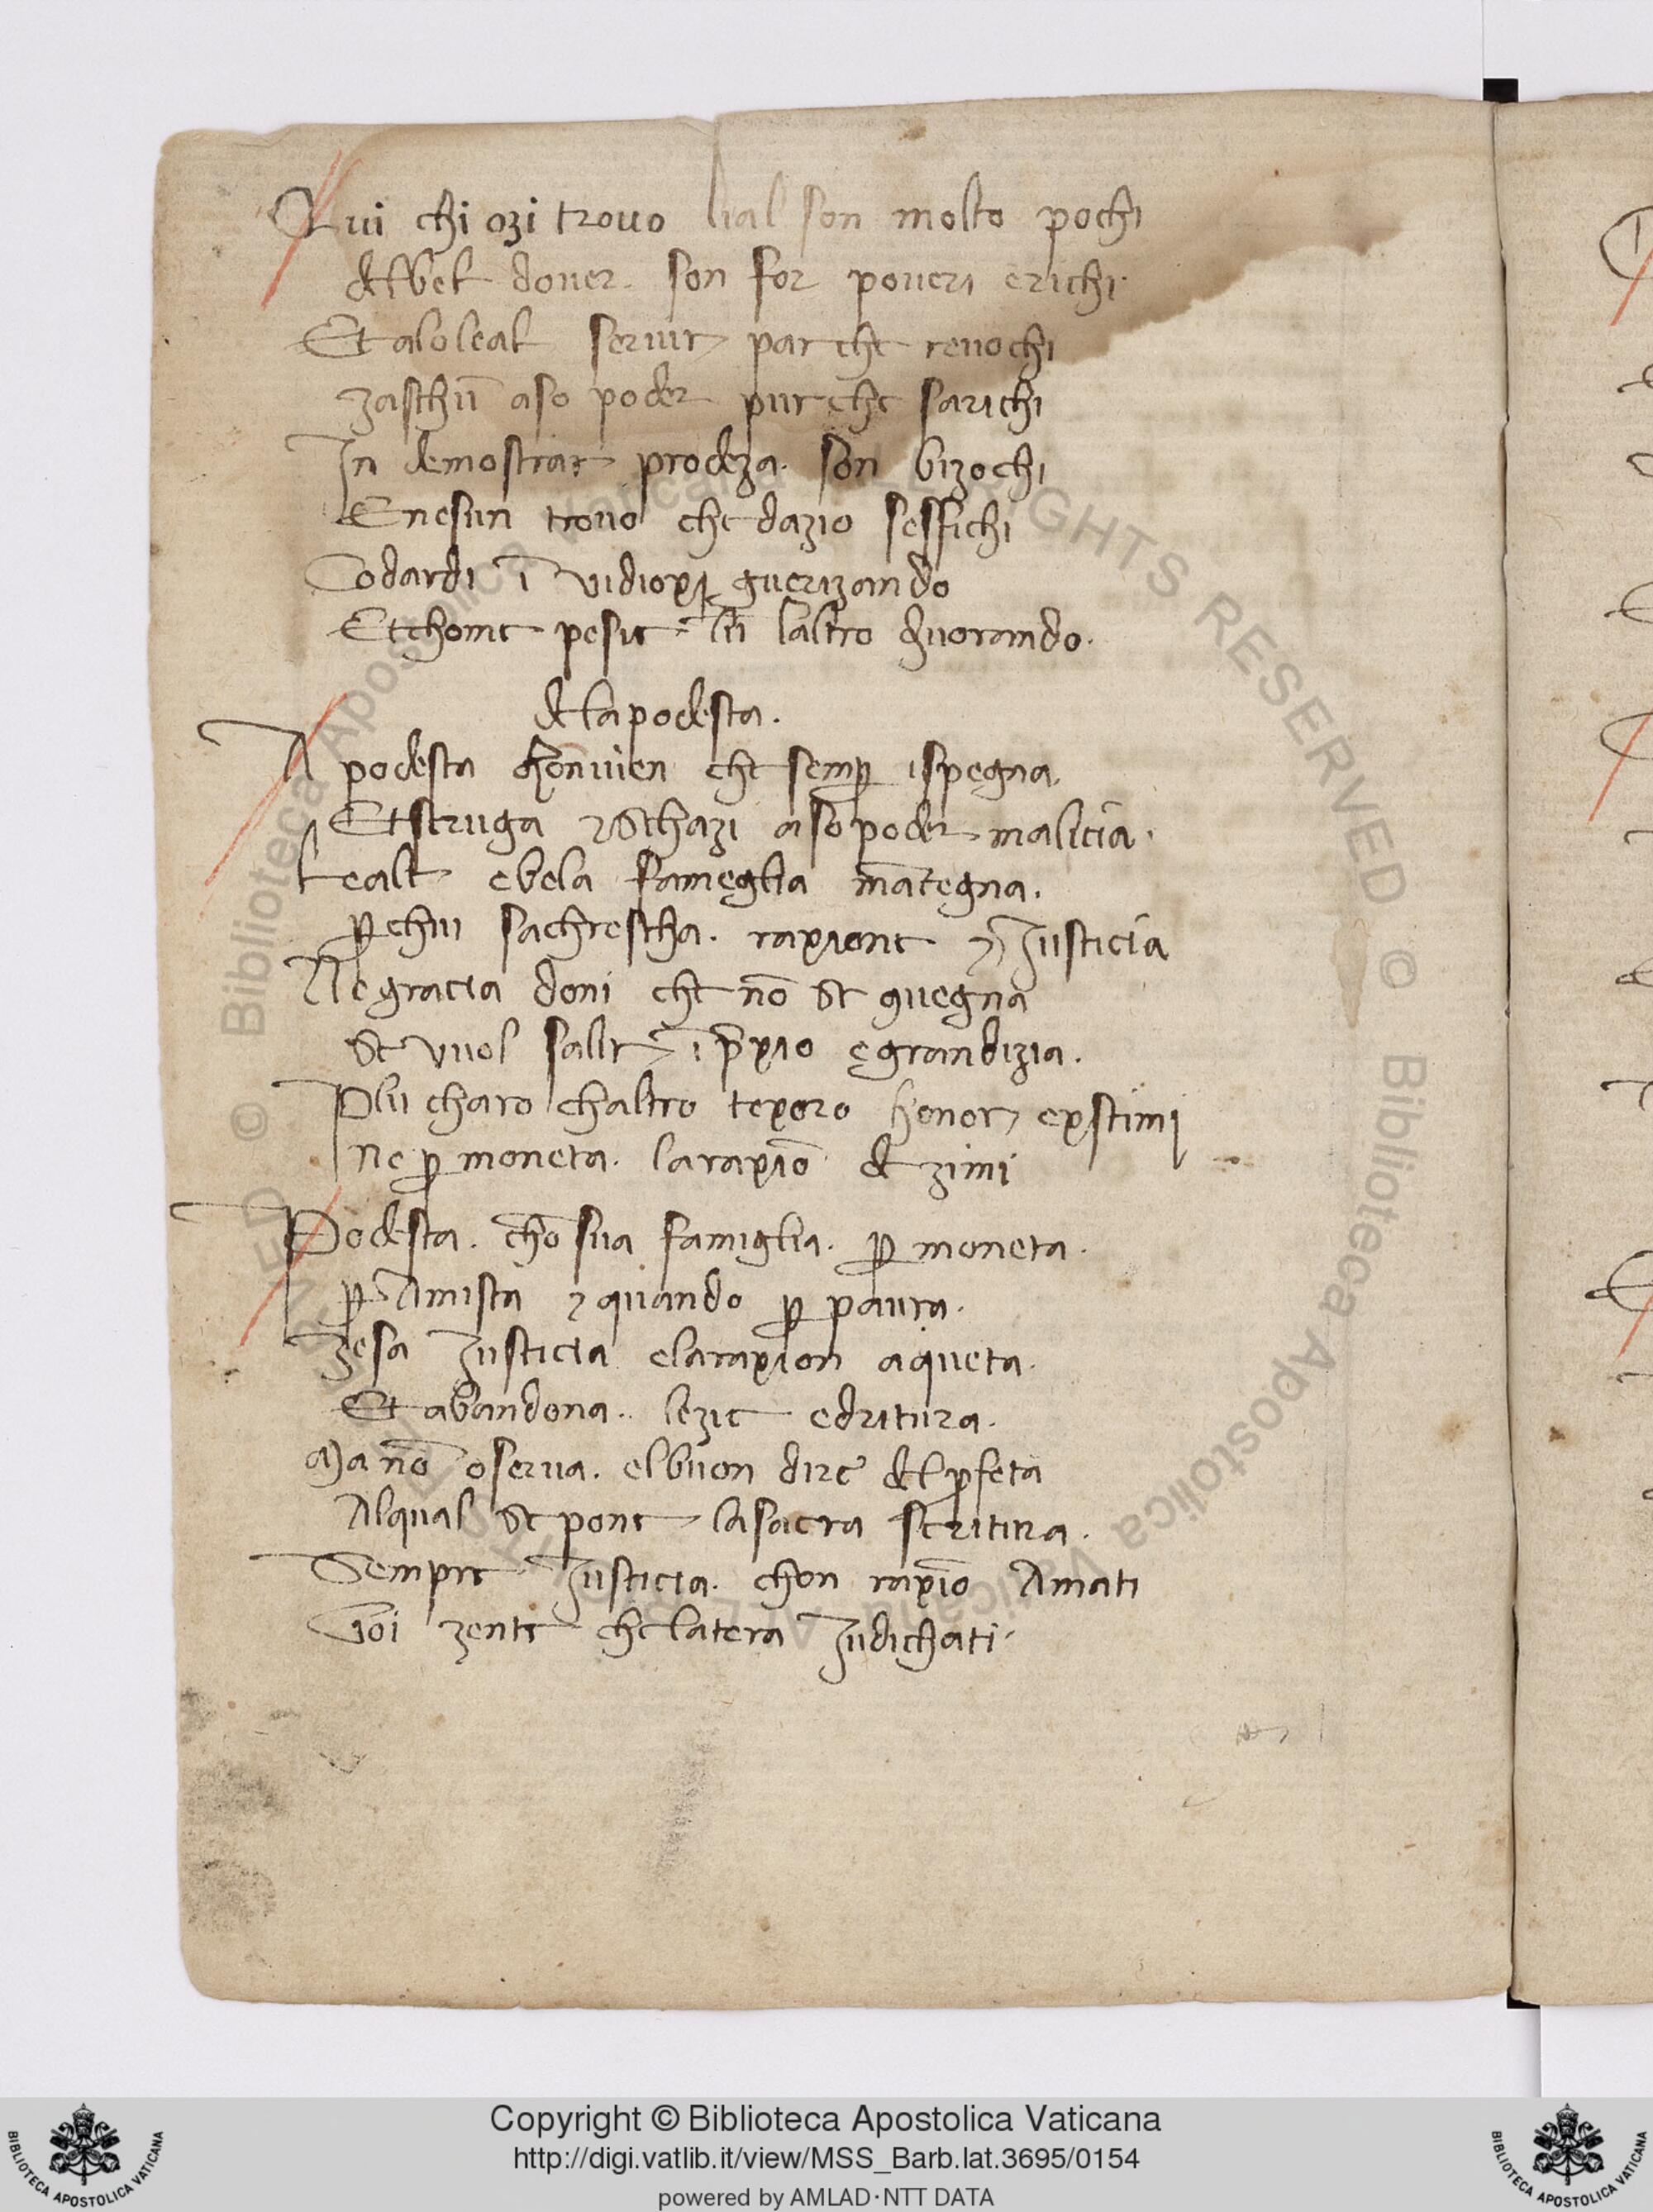 Qui chi ozi trouo lial son molto pochi
del bel douer. son for poueri erichi.
Et aloleal seruir par che reuochi
zaschū aso poder pur che sarichi
In demostrar prodeza. son bizochi
Enesun trouo che dazio sesfichi
Codardi ī uidioxi guerizando
Et chome pesie lū laltro diuorando.
del la podesta.
A podesta chōnuien che semꝑ ispegna.
Et struga ⁊ deschazi aso poder malicia.
Leal e bela fameglia mātegna.
ꝑ chui sachrescha. raxione ⁊ Justicia
Ne gracia doni che nō se quegna
Se vuol salir ī p̄xio e grandizia.
Plu charo chaltro texoro honor exstimi
Ne ꝑ moneta. la raxiō de zimi
Podesta. chō sua famiglia. ꝑ moneta.
ꝑ Amista ⁊ quando ꝑ paura.
Zesa Justicia e la raxion aqueta.
Et abandona. lezie e dritura.
Ma nō oserua. el buon dire del ꝓfeta
Al qual se pone la sacra scritura.
Sempre Justicia. chon raxiō Amati
Voi zente che la tera Judichati.
© Biblioteca Apostolica Vaticana ALL RIGHTS RESERVED © Biblioteca Apostolica Vaticana ALL RIGHTS RESERVED
Copyright © Biblioteca Apostolica Vaticana
http://digi.vatlib.it/view/MSS_Barb.lat.3695/0154
powered by AMLAD·NTT DATA
BIBLIOTECA APOSTOLICA VATICANA
BIBLIOTECA APOSTOLICA VATICANA